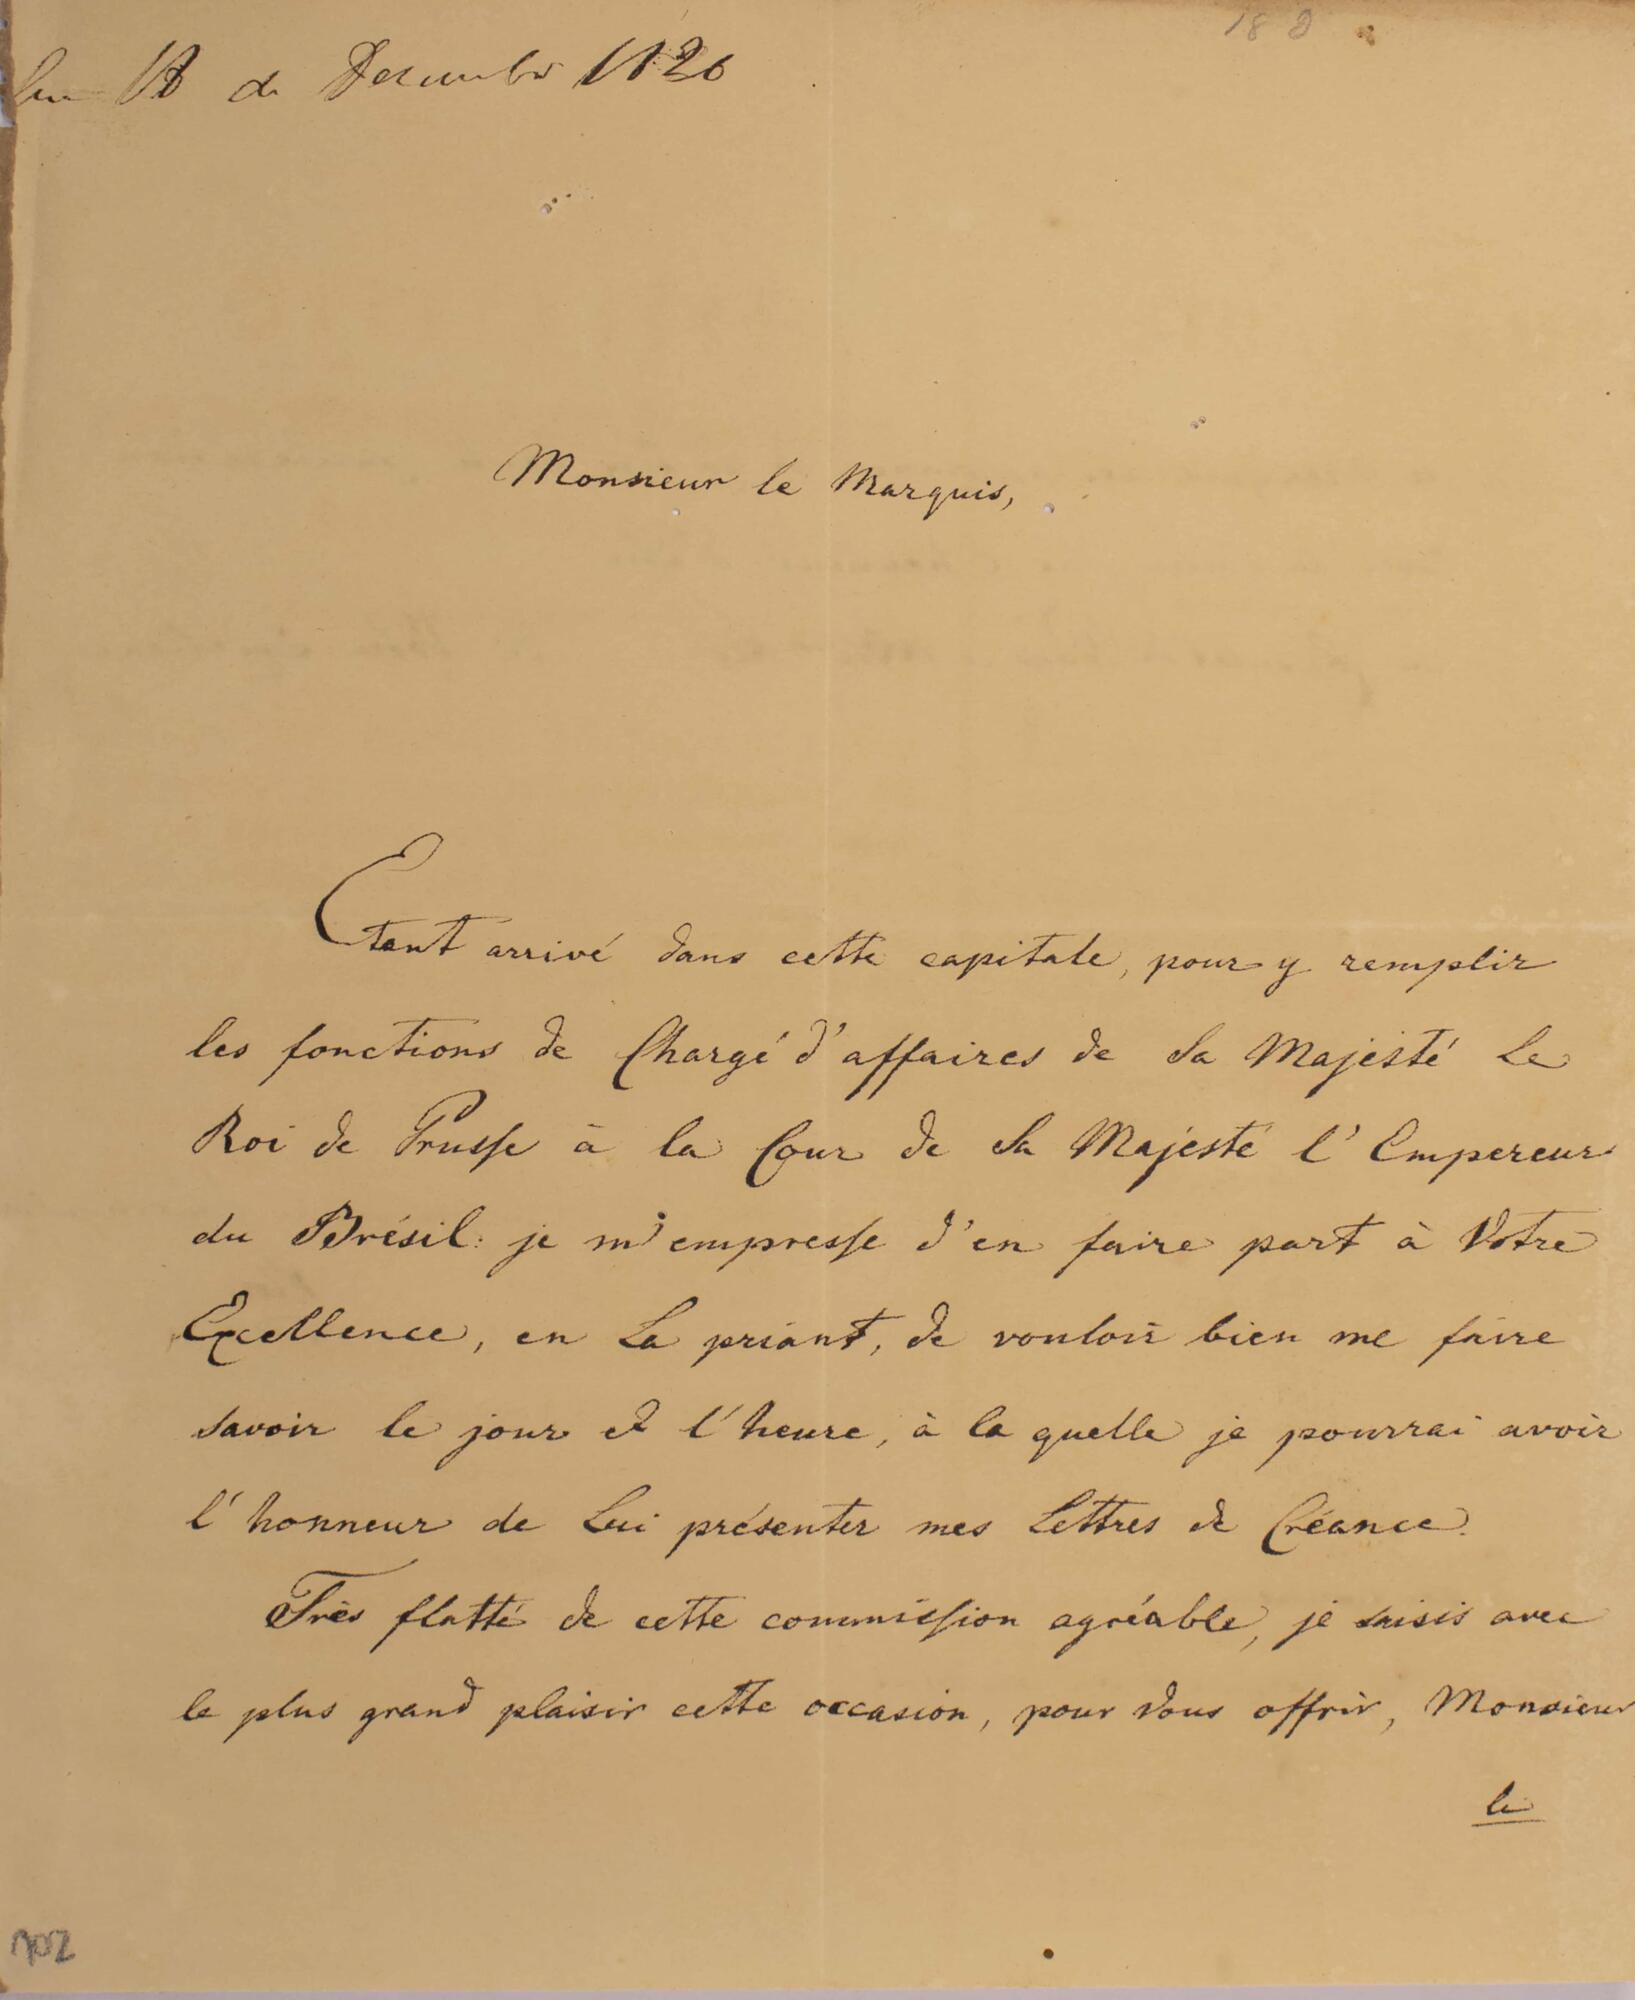 18 de Dezembro 1826
Monsieur le Marquis,
Etant arrivé dans cette capitale, pour y remplir
les fonctions de Chargé d'affaires de Sa Majesté Le
Roi de Prusse à la Cour de Sa Majesté l'Empereur
du Brésil: je m'empresse d'en faire part à Votre
Excellence, en La priant, de vouloir bien me faire
savoir le jour et l'heure, à la quelle je pourrai avoir
l'honneur de Lui présenter mes Lettres de Créance.
Très flatté de cette commission agréable, je saisis avec
le plus grand plaisir cette occasion, pour Vous offrir, Monsieur
le